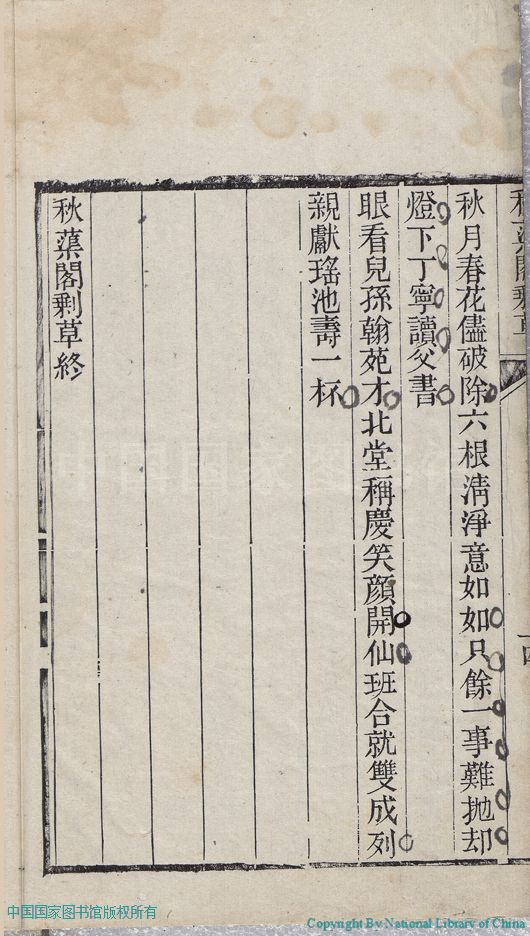 秋月春花儘破除六根淸淨意如如只餘一事難抛却
燈下丁寧讀父書
眼看兒孫翰苑才北堂稱慶笑顏開仙班合就雙成列
親獻瑤池壽一杯
秋蕖閣剩草終
中国国家图书馆版权所有
Copyright By National Library of China